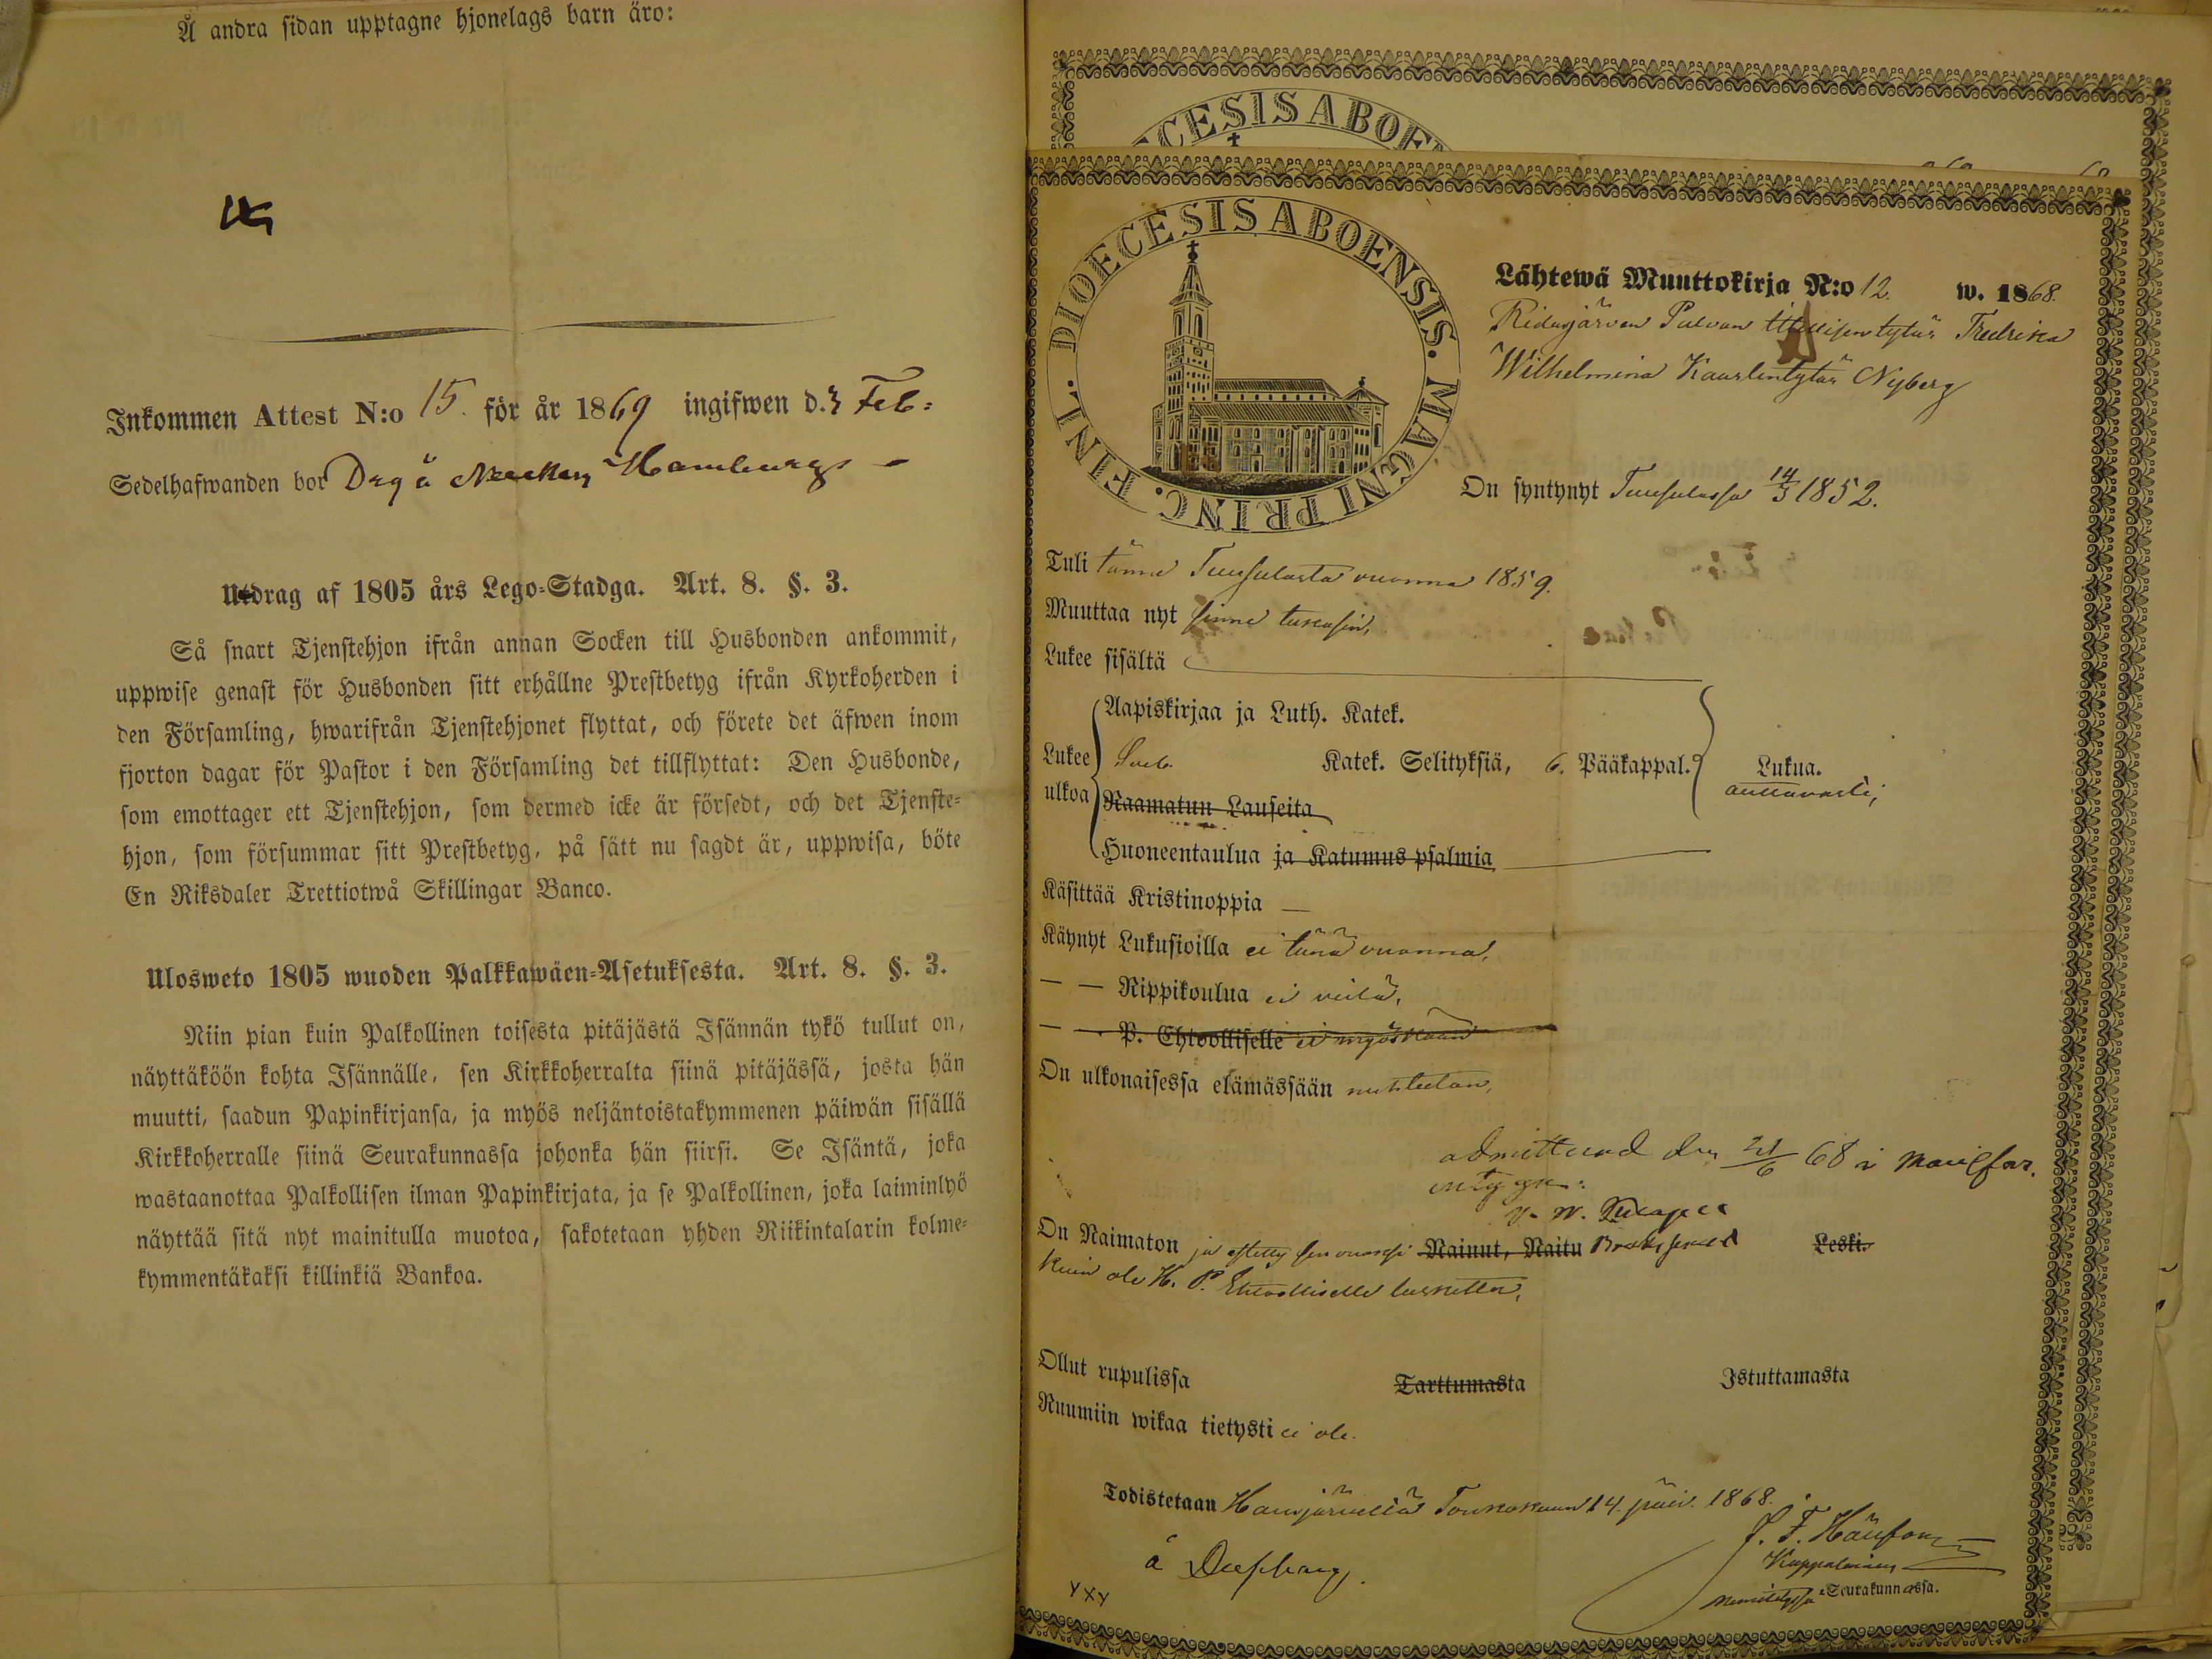 Å andra sidan upptagne hjonelags barn äro:
Inkommen Attest N:o 15. för år 1869 ingifwen d. 3 Feb:
Sedelhafwanden bor
Utdrag af 1805 års Lego-Stadga. Art. 8. §. 3.
Så snart Tjenstehjon ifrån annan Socken till Husbonden ankommit,
uppwise genast för Husbonden sitt erhållne Prestbetyg ifrån Kyrkoherden i
den Församling, hwarifrån Tjenstehjonet flyttat, och förete det äfwen inom
fjorton dagar för Pastor i den Församling det tillflyttat: Den Husbonde,
som emottager ett Tjenstehjon, som dermed icke är försedt, och det Tjenste-
hjon, som försummar sitt Prestbetyg, på sätt nu sagdt är, uppwisa, böte
En Riksdaler Trettiotwå Skillingar Banco.
Ulosweto 1805 wuoden Palkkawäen-Asetuksesta. Art. 8. §. 3.
Niin pian kuin Palkollinen toisesta pitäjästä Isännän tykö tullut on,
näyttäköön kohta Isännälle, sen Kirkkoherralta siinä pitäjässä, josta hän
muutti, saadun Papinkirjansa, ja myös neljäntoistakymmenen päiwän sisällä
Kirkkoherralle siinä Seurakunnassa johonka hän siirsi. Se Isäntä, joka
wastaanottaa Palkollisen ilman Papinkirjata, ja se Palkollinen, joka laiminlyö
näyttää sitä nyt mainitulla muotoa, sakotetaan yhden Riikintalarin kolme-
kymmentäkaksi killinkiä Bankoa.
DIOECESIS ABOENSIS. MAGNI PRINC. FINL.
Lähtewä Muuttokirja N:o 12. w. 1868.
Ridasjärven Fredrika
Wilhelmina Kaarlentytär Nyberg
On syntynyt Tuusulassa 14/3 1852.
Tuli tänne Tuusulasta vuonna 1859.
Muuttaa nyt sinne takasin.
Lukee sisältä
Aapiskirjaa ja Luth. Katek.
Lukee Sveb. Katek. Selityksiä, 6. Pääkappal. Lukua.
ulkoa Raamatun Lauseita auttavasti;
Huoneentaulua ja Katumus psalmia
Käsittää Kristinoppia —
Käynyt Lukusioilla ei tänä vuonna.
— — Rippikoulua ei vielä.
— P. Ehtoolliselle ei myöskään
On ulkonaisessa elämässään nuhteeton.
admitterad den 21/6 68 i
On Naimaton ja Nainut, Naitu Leski.
kuin ole H. P. Ehtoolliselle laskettu.
Ollut rupulissa Tarttumasta Istuttamasta
Ruumiin wikaa tietysti ei ole.
Todistetaan Hausjärvellä Toukokuun 14. päiv. 1868.
Kappalainen
Seurakunnassa.